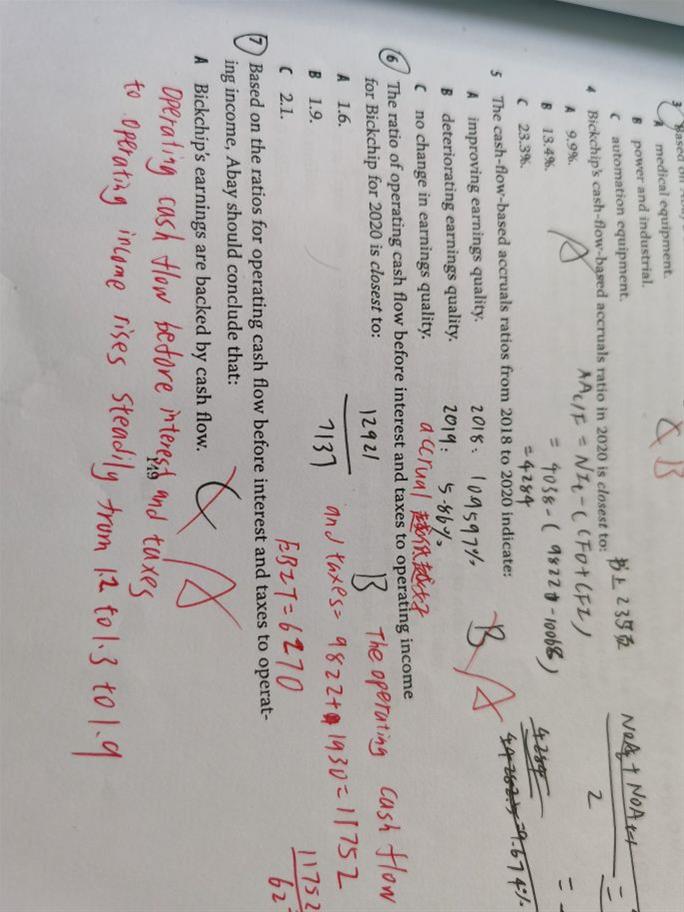 3 Based on
A medical equipment.
B power and industrial.
C automation equipment.
B
4 Bickchip's cash-flow-based accruals ratio in 2020 is closest to:
书上235页
A 9.9%.
B 13.4%.
C 23.3%.
A
= NIt - (CFO + CFI)
= 9038 - (9822 - 10068)
= 4284
2
5 The cash-flow-based accruals ratios from 2018 to 2020 indicate:
A improving earnings quality.
B deteriorating earnings quality.
C no change in earnings quality.
2018: 10.9597%
2019: 5.86%
accrual
B A
6 The ratio of operating cash flow before interest and taxes to operating income
for Bickchip for 2020 is closest to:
A 1.6.
B 1.9.
C 2.1.
12921
7137
B
The operating cash flow
and taxes = 9822 + 1930 = 11752
EBIT = 6270
11752
62
7 Based on the ratios for operating cash flow before interest and taxes to operat-
ing income, Abay should conclude that:
A Bickchip's earnings are backed by cash flow.
A
Operating cash flow before interest and taxes
to operating income rises steadily from 1.2 to 1.3 to 1.9